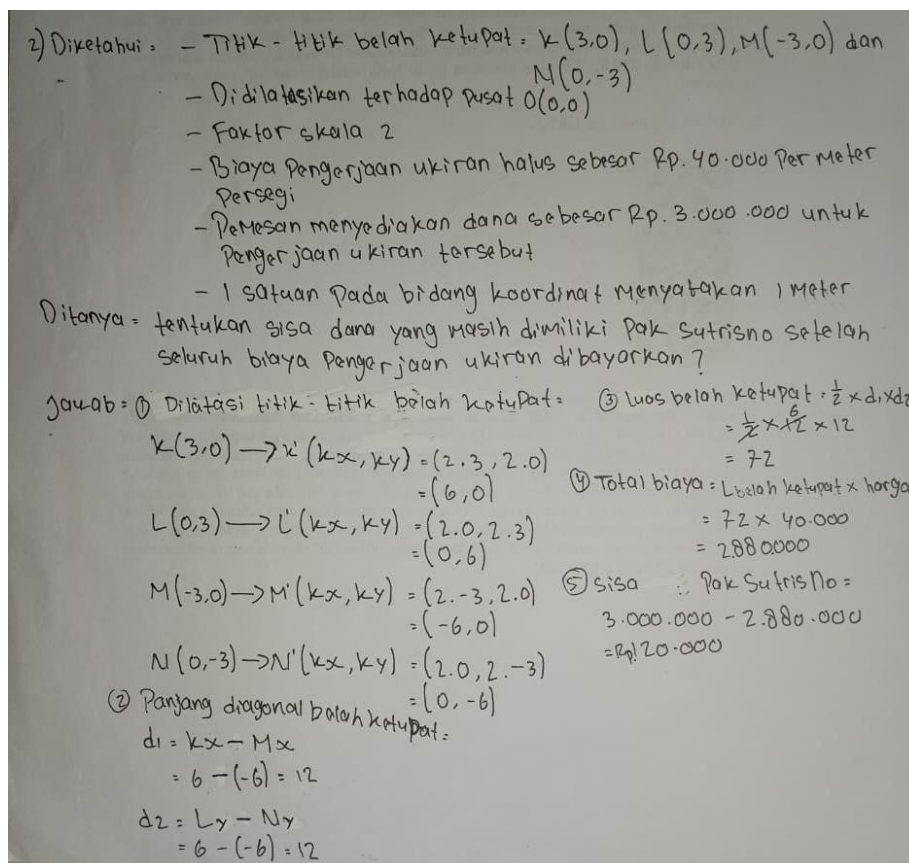 2) Diketahui = - Titik - titik belah ketupat = K(3,0), L(0,3), M(-3,0) dan
N(0,-3)
- Didilatasikan terhadap pusat O(0,0)
- Faktor skala 2
- Biaya Pengerjaan ukiran halus sebesar Rp. 40.000 Per Meter
Persegi
- Pemesan menyediakan dana sebesar Rp. 3.000.000 untuk
Pengerjaan ukiran tersebut
- 1 satuan Pada bidang koordinat menyatakan 1 Meter
Ditanya = tentukan sisa dana yang masih dimiliki Pak Sutrisno setelah
seluruh biaya Pengerjaan ukiran dibayarkan?
Jawab = ① Dilatasi titik - titik belah ketupat =
K(3,0) → K'(kx, ky) = (2.3, 2.0)
= (6,0)
L(0,3) → L'(kx, ky) = (2.0, 2.3)
= (0,6)
M(-3,0) → M'(kx, ky) = (2.-3, 2.0)
= (-6,0)
N(0,-3) → N'(kx, ky) = (2.0, 2.-3)
= (0,-6)
② Panjang diagonal belah ketupat =
d1 = Kx - Mx
= 6 - (-6) = 12
d2 = Ly - Ny
= 6 - (-6) = 12
③ Luas belah ketupat = ½ x d1 x d2
= ½ x 12 6 x 12
= 72
④ Total biaya = Lbelah ketupat x harga
= 72 x 40.000
= 2.880.000
⑤ Sisa : Pak Sutrisno =
3.000.000 - 2.880.000
= Rp120.000